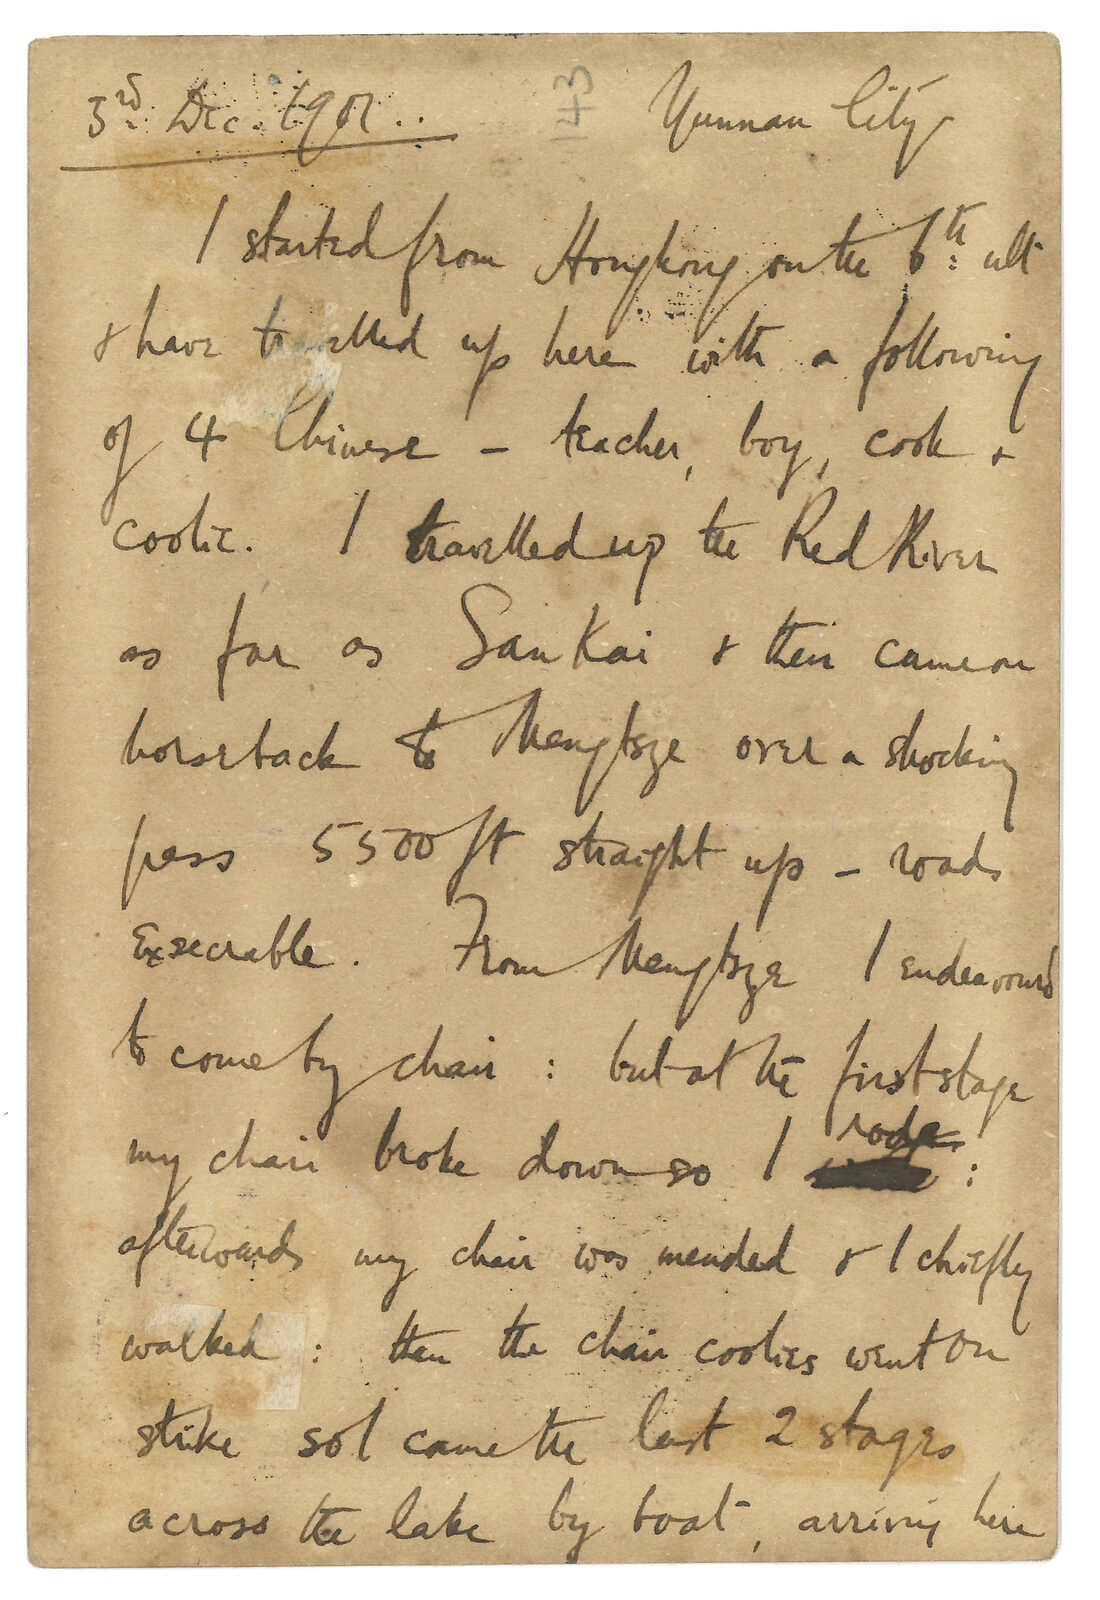 3rd. Dec. 1901.. 143 Yunnan City
I started from Hongkong on the 6th: ult
& have travelled up here with a following
of 4 Chinese – teacher, boy, cook &
coolie. I travelled up the Red River
as far as San Kai & then came on
horseback to Mengtsze over a shocking
pass 5500 ft straight up – roads
Exsecrable. From Mengtsze I endeavoured
to come by chair : but at the first stage
my chair broke down so I rode :
afterwards my chair was mended & I chiefly
walked : then the chair coolies went on
strike so I came the last 2 stages
across the lake by boat, arriving here